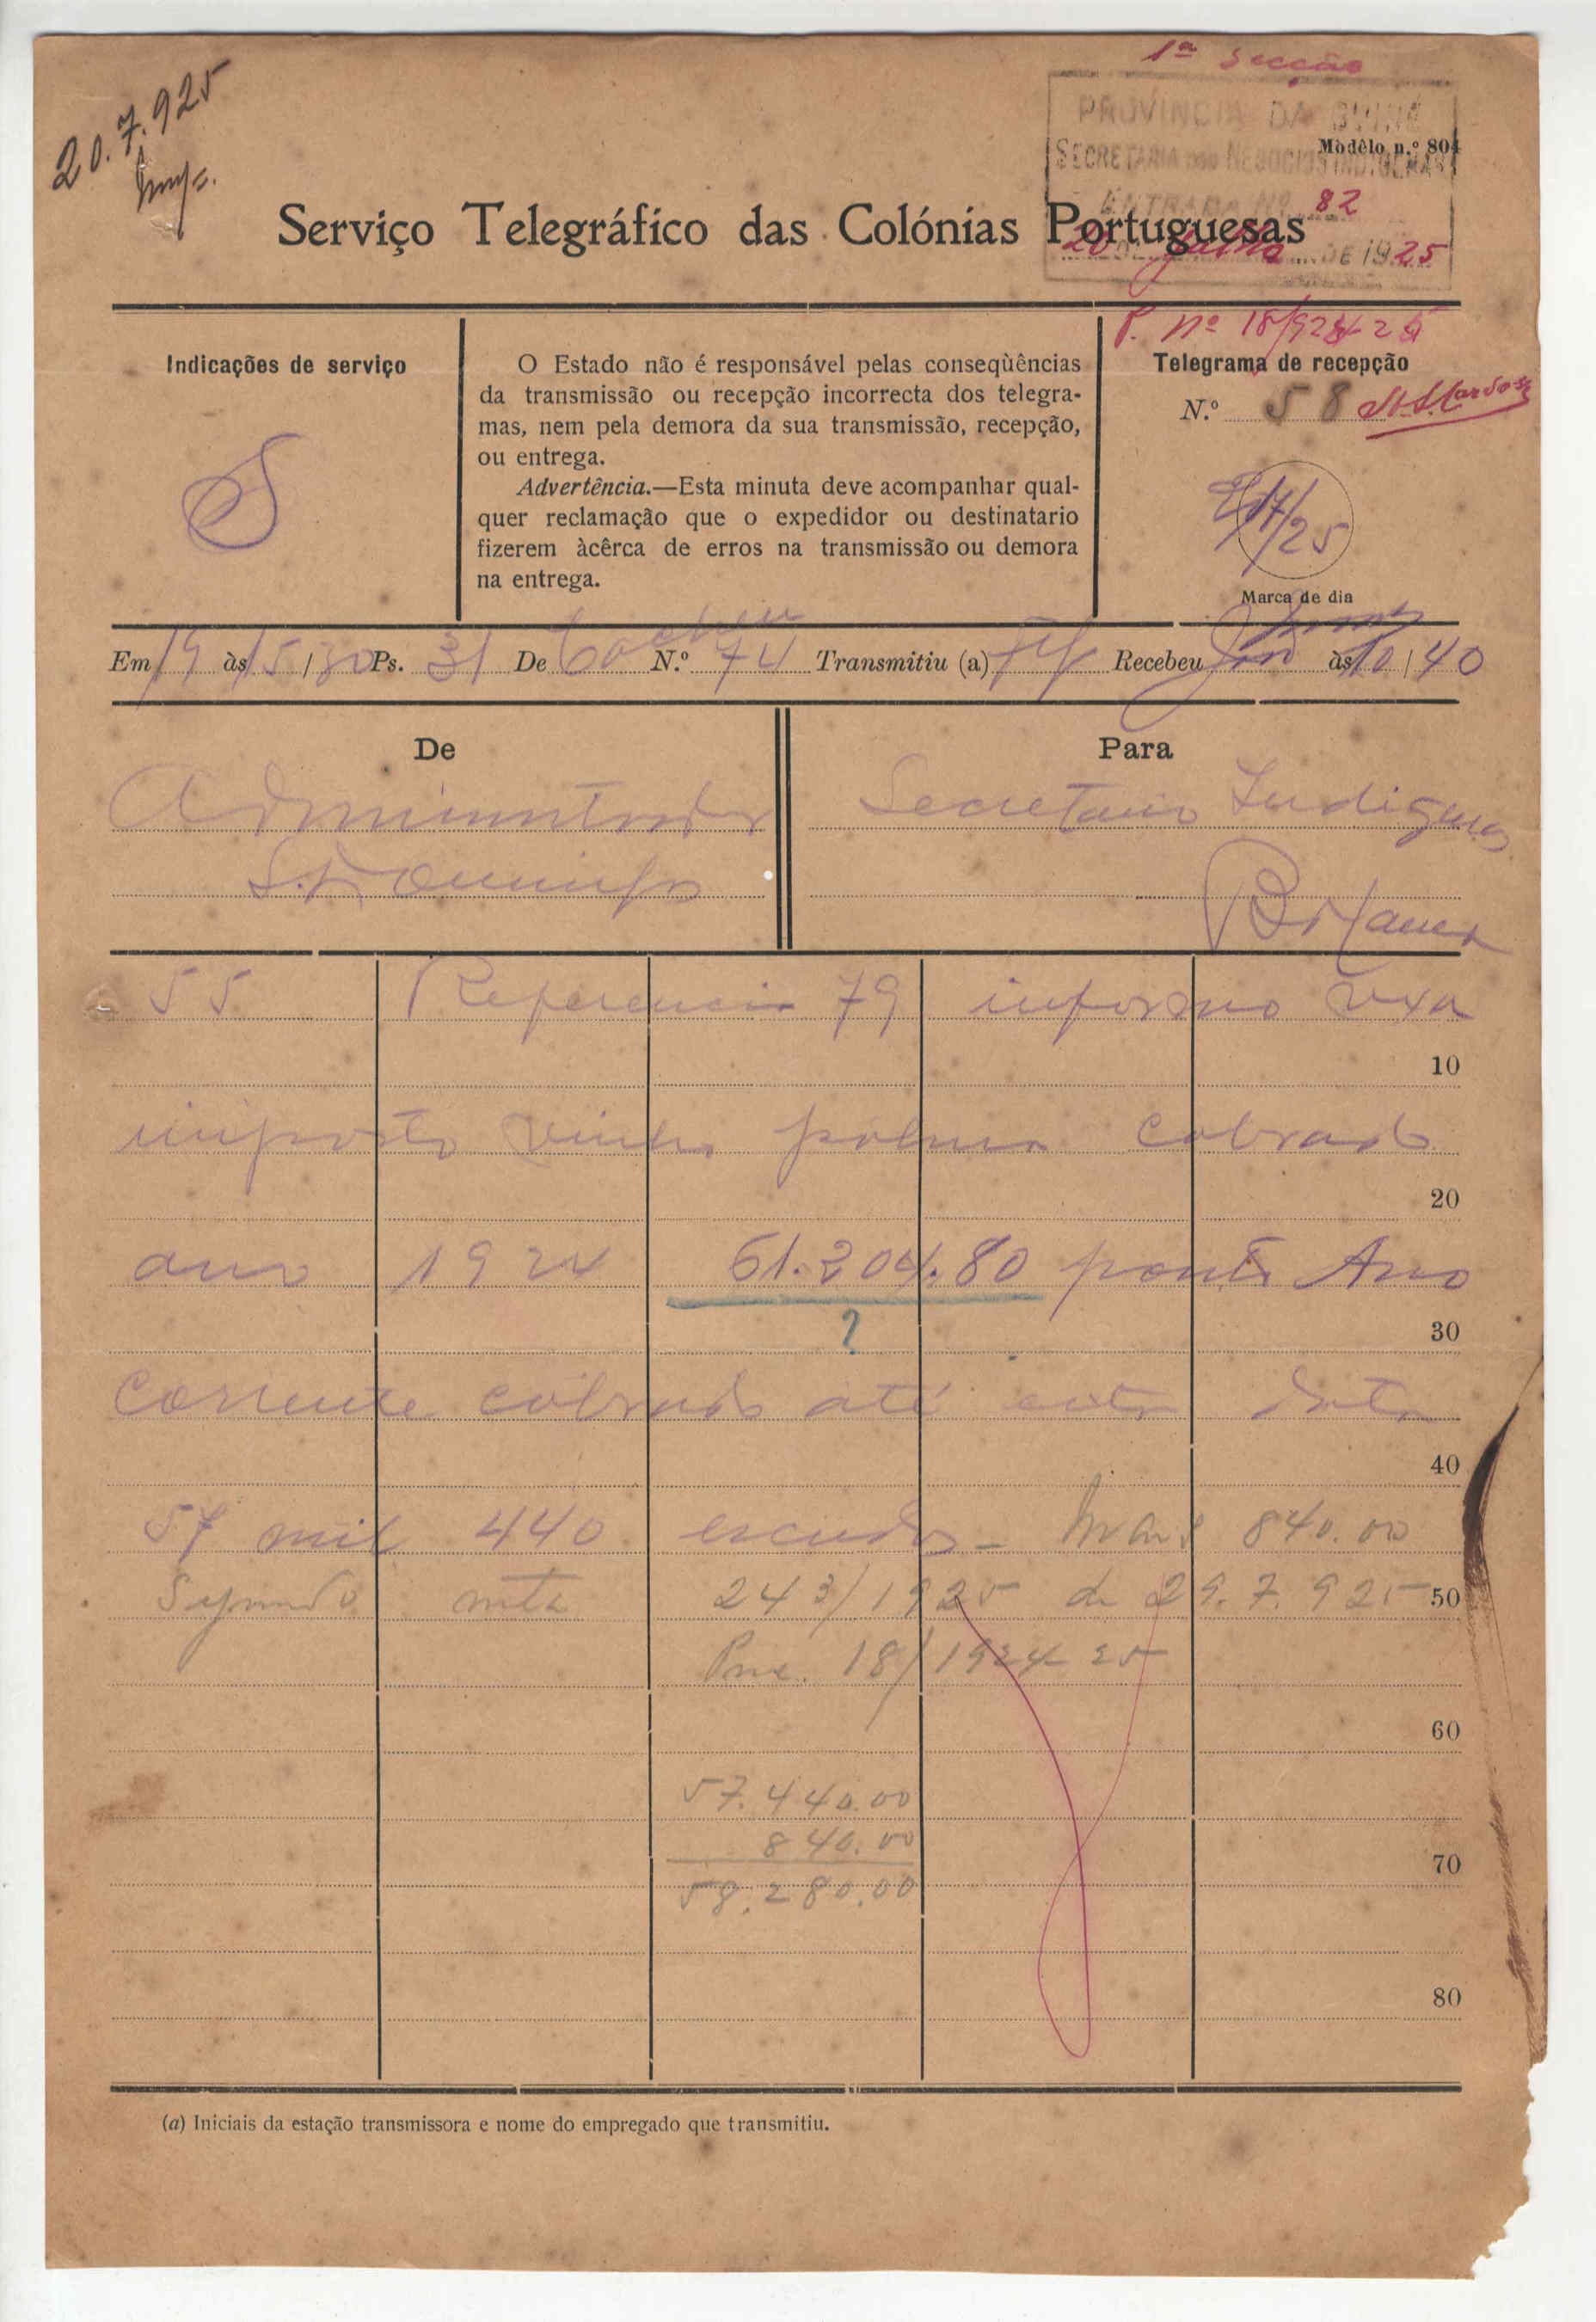 20.7.925
1ª Secção
PROVINCIA DA GUINÉ
SECRETARIA DOS NEGOCIOS INDIGENAS
Modêlo n.º 804
ENTRADA Nº 82
20 DE Julho DE 1925
Serviço Telegráfico das Colónias Portuguesas
P. Nº 18/924-25
Indicações de serviço
S
O Estado não é responsável pelas conseqùências
da transmissão ou recepção incorrecta dos telegra-
mas, nem pela demora da sua transmissão, recepção,
ou entrega.
Advertência.—Esta minuta deve acompanhar qual-
quer reclamação que o expedidor ou destinatario
fizerem àcêrca de erros na transmissão ou demora
na entrega.
Telegrama de recepção
N.º 58
Marca de dia
Em 19 às 15/30 Ps. 31 De Cacheu N.º 74 Transmitiu (a) Recebeu às 10/40
De
Para
Administrador
S. Domingos
Secretario Indigenas
Bolama
55 Referencia 79 informo vexa
10
imposto vinho palma cobrado
20
ano 1924 61.204.80 ponto Ano
?
30
corrente cobrado até esta data
40
57 mil 440 escudos - Mais 840.00
Segundo nota 243/1925 de 29.7.925
50
Proc. 18/1924-25
60
57.440.00
840.00
70
58.280.00
80
(a) Iniciais da estação transmissora e nome do empregado que transmitiu.